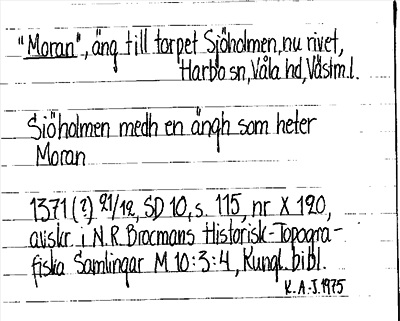 "Moran", äng till torpet Sjöholmen, nu rivet,
Harbo sn, Våla hd, Västm.l.
Siöholmen medh en ängh som heter
Moran
1371 (?) 21/12, SD 10, s. 115, nr X 120,
avskr. i N.R. Brocmans Historisk-Topogra-
fiska Samlingar M 10:3:4, Kungl. bibl.
K.A-J. 1975